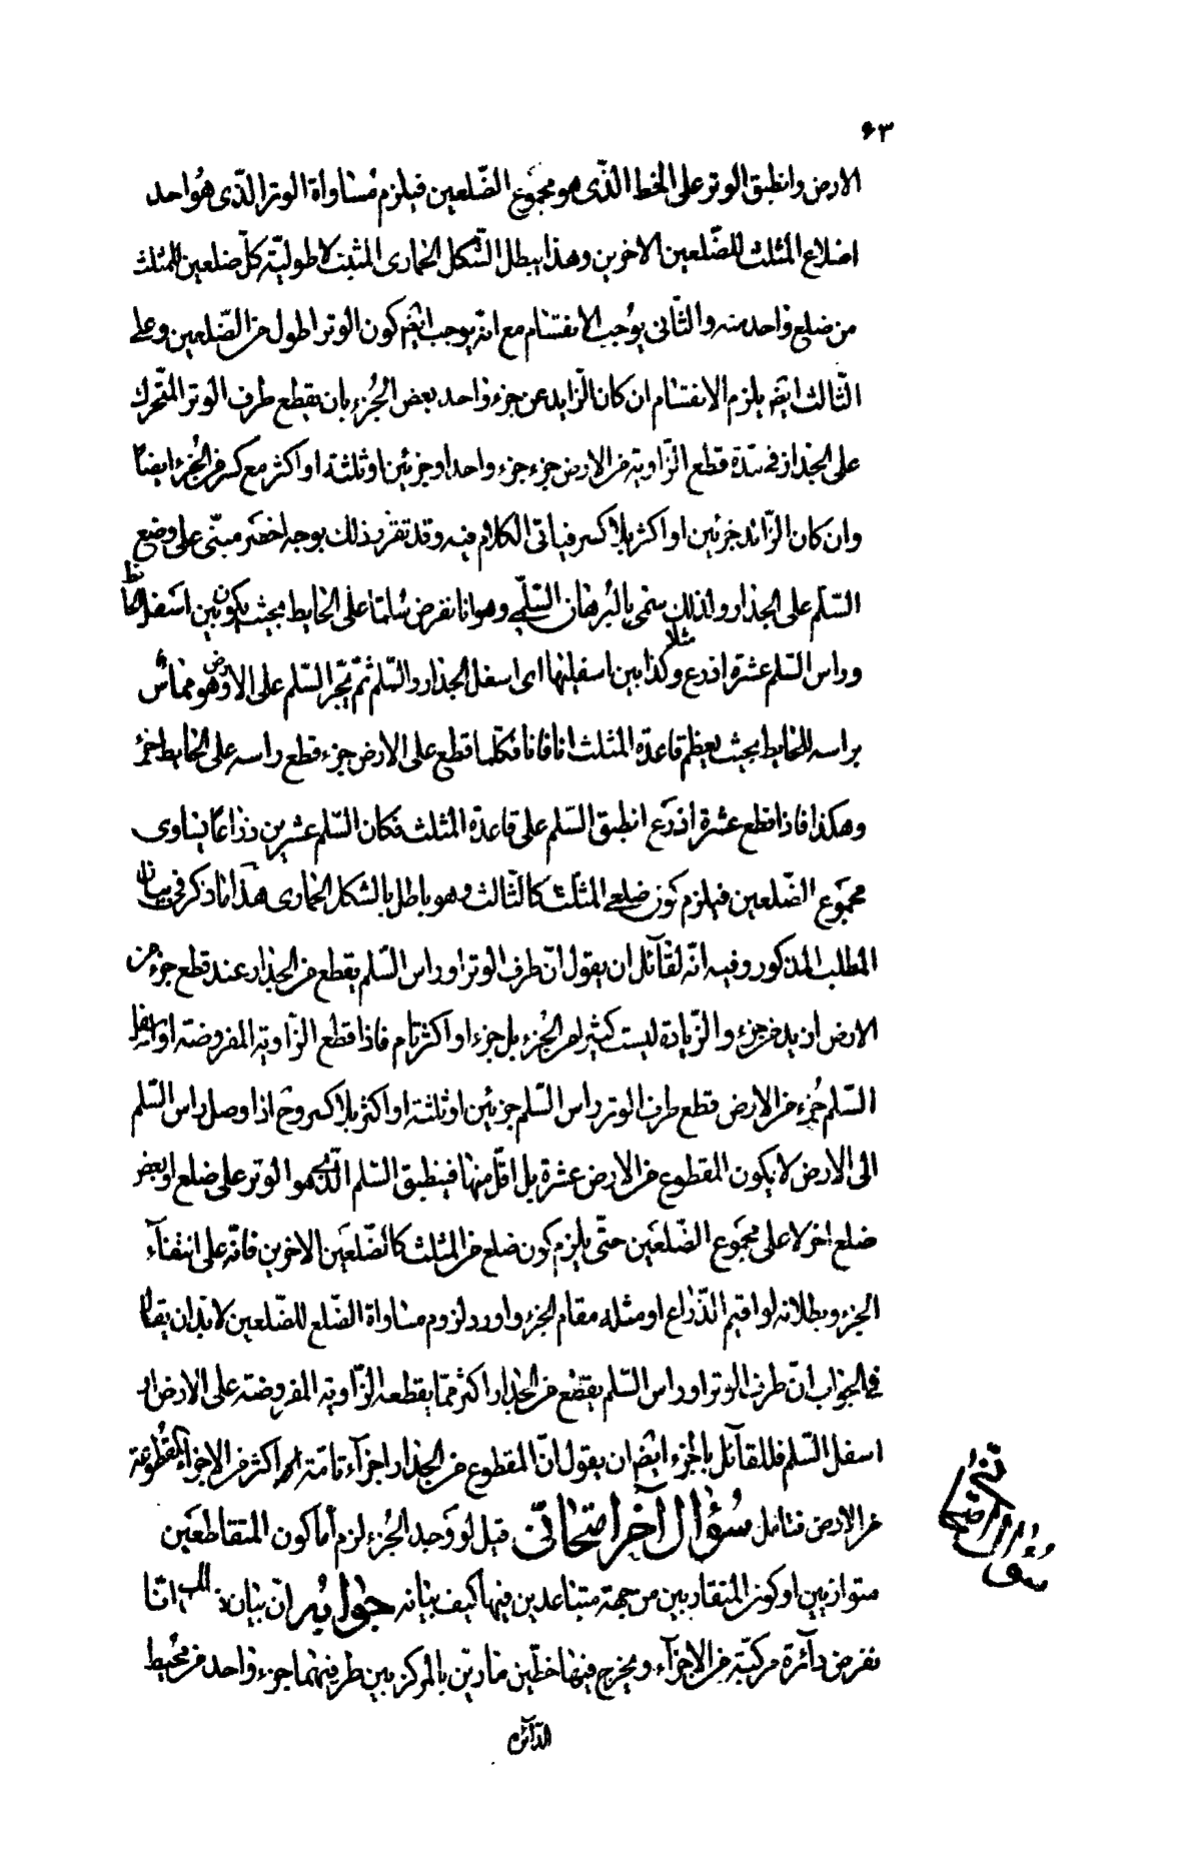 ۶۳
الارض وانطبق الوتر على الخط الذّى هو مجموع الضّلعين فيلزم مساواة الوتر الذّى هو احد
اضلاع المثلث للضّلعين الاخرين وهذا يبطل الشّكل الحمارى المثبت لاطوليّة كلّ ضلعين للمثلث
من ضلع واحد منه والثّانى يوجب الانقسام مع انّه يوجب ايضم كون الوتر اطول من الضّلعين وعلى
الثّالث ايضم يلزم الانقسام ان كان الزّايد عن جزء واحد بعض الجزء بان يقطع طرف الوتر المتحرّك
على الجدار فى مدّة قطع الزّاوية من الارض جزء جزء واحد او جزئين او ثلثة او اكثر مع كسر من الجزء ايضا
وان كان الزّائد جزئين او اكثر بلا كسر فياتى الكلام فيه وقد تقرر ذلك بوجه اخصر مبنّى على وضع
السّلم على الجدار ولذلك سمى بالبرهان السّلّمى وهو انا نفرض سلما على الحايط بحيث يكون بين اسفل الحايط
وراس السّلم عشرة اذرع مثلا وكذا بين اسفليهما اى اسفل الجدار والسّلم ثمّ يجّر السّلم على الارض وهو مماس
براسه للحايط بحيث يعظم قاعدة المثلث انا فانا فكلما قطع على الارض جزء قطع راسه على الحايط جزء
وهكذا فاذا قطع عشرة اذرع انطبق السّلم على قاعدة المثلث فكان السّلم عشرين ذراعا يساوى
مجموع الضّلعين فيلزم كون ضلعى المثلث كالثّالث وهو باطل بالشكل الحمارى هذا ما ذكر فى بيان
المطلب المذكور وفيه انّه لقائل ان يقول انّ طرف الوتر او راس السّلم يقطع من الجدار عند قطع جزء من
الارض ازيد من جزء والزّيادة ليست كسرا من الجزء بل جزء او اكثر تام فاذا قطع الزّاوية المفروضة او اسفل
السّلم جزء من الارض قطع طرف الوتر وراس السّلم جزئين او ثلثة او اكثر بلا كسر وح اذا وصل راس السّلم
الى الارض لا يكون المقطوع من الارض عشرة بل اقلّ منها فينطبق السّلم الذّى هو الوتر على ضلع او بعض
ضلع اخر لا على مجموع الضّلعين حتّى يلزم كون ضلع من المثلث كالضّلعين الاخرين فانّه على انتفآء
الجزء وبطلانه لو اقيم الذّراع او مثله مقام الجزء واورد لزوم مساواة الضّلع للضّلعين لا بدّ ان يقال
فى الجواب انّ طرف الوتر او راس السّلم يقطع من الجدار اكثر ممّا يقطعه الزّاوية المفروضة على الارض او
اسفل السّلم فللقآئل بالجزء ايضم ان يقول انّ المقطوع من الجدار اجزآء تامّة اكثر من الاجزاء المقطوعة
من الارض فتامل سُؤال آخر امتحانىّ قيل لو وجد الجزء لزم أما كون المتقاطعَين
متوازيين او كون المتقاربين من جهة متباعدين فيها كيف بيانه جوابُه انّ بيان انّا
نفرض دآئرة مركبّة من الاجزآء ويخرج فيها خطّين مارّين بالمركز بين طرفيهما جزء واحد من محيط
الدّآئرة
سؤال امتحانى